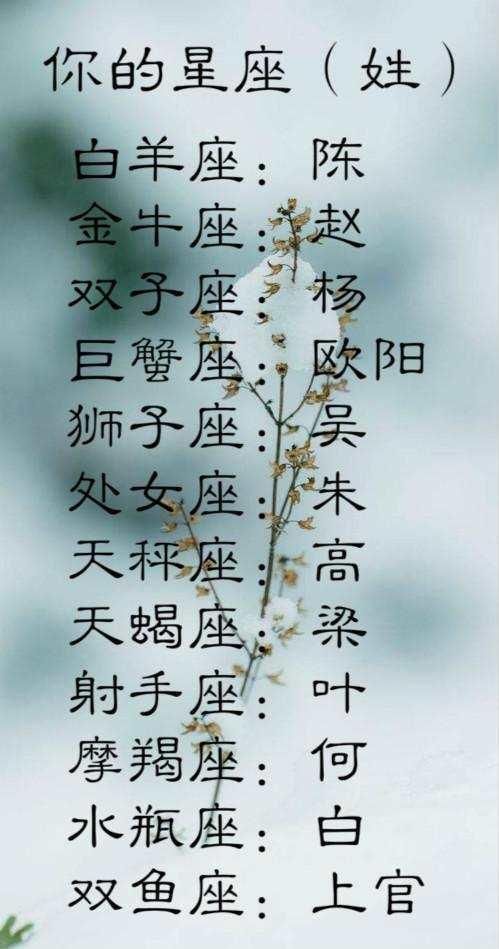 你的星座（姓）
白羊座：陈
金牛座：赵
双子座：杨
巨蟹座：欧阳
狮子座：吴
处女座：朱
天秤座：高
天蝎座：梁
射手座：叶
摩羯座：何
水瓶座：白
双鱼座：上官